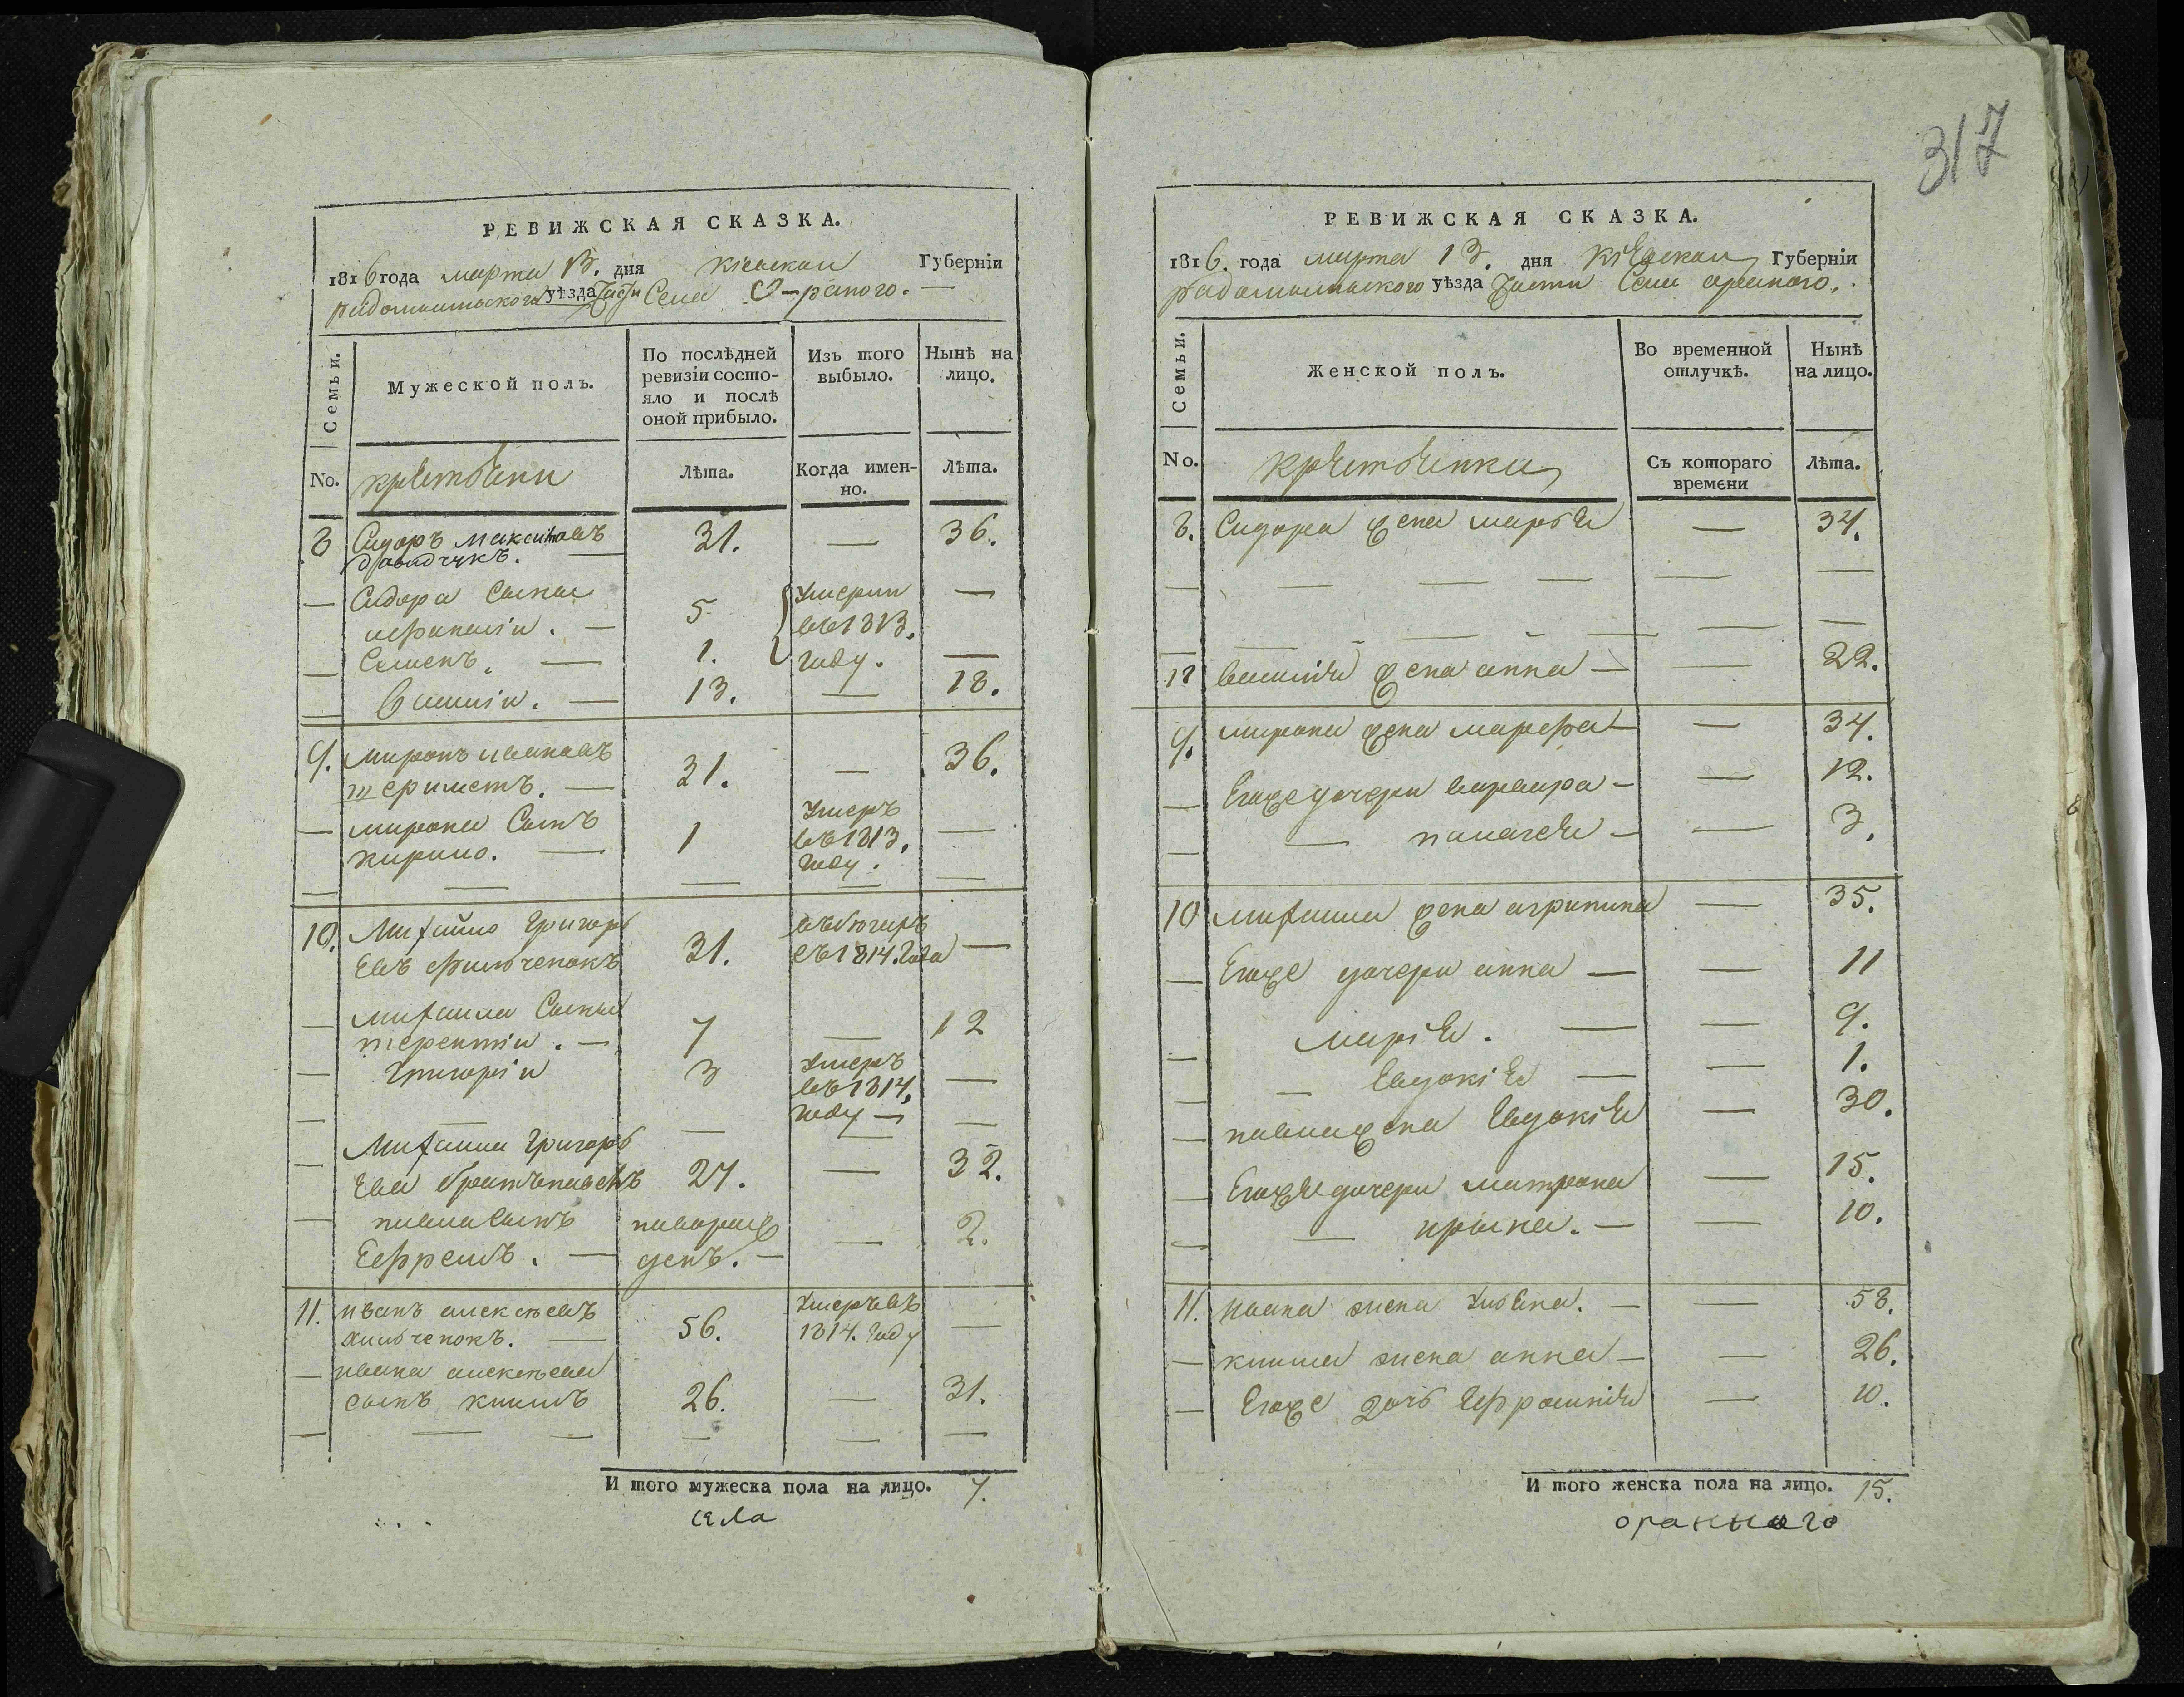 317
РЕВИЖСКАЯ СКАЗКА.
1816 года марта 13. дня Кіевской Губерніи
радомышльского уѣзда Части Села О-раного.
Семьи.
Мужеской полъ.
По послѣдней ревизіи состо-
яло и послѣ
оной прибыло.
Изъ того
выбыло.
Нынѣ на
лицо.
No.
крестьяни
Лѣта.
Когда имен-
но.
Лѣта.
8 Сидоръ Максимовъ
Давидчукъ. 31. — 36.
— Сидора Сыны
афанасіи. — 5 Умерли —
въ 1813.
— Семенъ. — 1. году. —
— Василіи. — 13. — 18.
9. Миронъ ивановъ
шереметъ. — 31. — 36.
— мирона Сынъ
кирило. — 1 Умеръ
въ 1813.
году. —
10. Михайло Григорь
евъ фильченокъ 31. въ бегахъ
съ 1814. Года —
— михаила Сыны
терентіи. — 7 — 12
— Григоріи 3 Умеръ
въ 1814.
году — —
— Михаила Григорь
ева братъ павелъ 27. — 32.
— павла Сынъ новорож
Ефремъ. — денъ. — — 2.
11. иванъ алексѣевъ
хильченокъ. — 56. Умеръ въ
1814. Году —
— ивана алексѣева
сынъ климъ 26. — 31.
И того мужеска пола на лицо. 7.
села
РЕВИЖСКАЯ СКАЗКА.
1816. года марта 13. дня Кіевской Губерніи
радомышльского уѣзда Части Села ораного.
Семьи.
Женской полъ.
Во временной
отлучкѣ.
Нынѣ
на лицо.
No.
крестьянки
Съ котораго
времени
Лѣта.
8. Сидора жена марья — 34.
василія жена анна — — 22.
9. мирона жена марфа — — 34.
— Егоже дочери варвара — — 12.
— — палагея — — 3.
10 михаила жена агрипина — 35.
— Егоже дочери анна — — 11
— Марія. — — 9.
— — Евдокія — — 1.
— павла жена Евдокія — 30.
— Егоже дочери матрона — 15.
— — ирына. — — 10.
11. ивана жена Улѣяна. — — 58.
— клима жена анна — — 26.
— Егоже дочь Ефросинія — 10.
И того женска пола на лицо. 15.
оранного